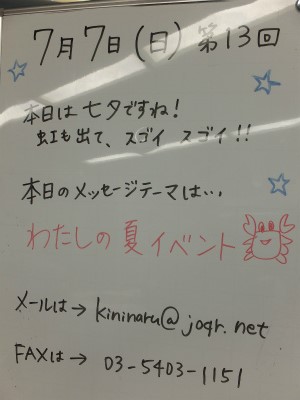 7月7日(日) 第13回
本日は七夕ですね!
虹も出て、スゴイ スゴイ!!
本日のメッセージテーマは...
わたしの夏イベント
メールは→ kininaru@joqr.net
FAXは→ 03-5403-1151